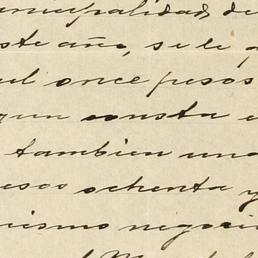 nicipalidad de
ste año, se le p
el once pesos
gun consta e
tambien una
esos ochenta y
mismo negoci